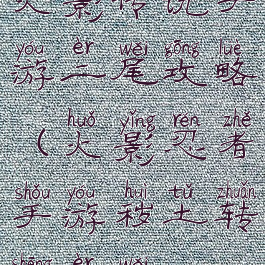 yóu èr wěi gōng lüè
游二尾攻略
huǒ yǐng rěn zhě
（火影忍者
shǒu yóu huì tǔ zhuǎn
手游秽土转